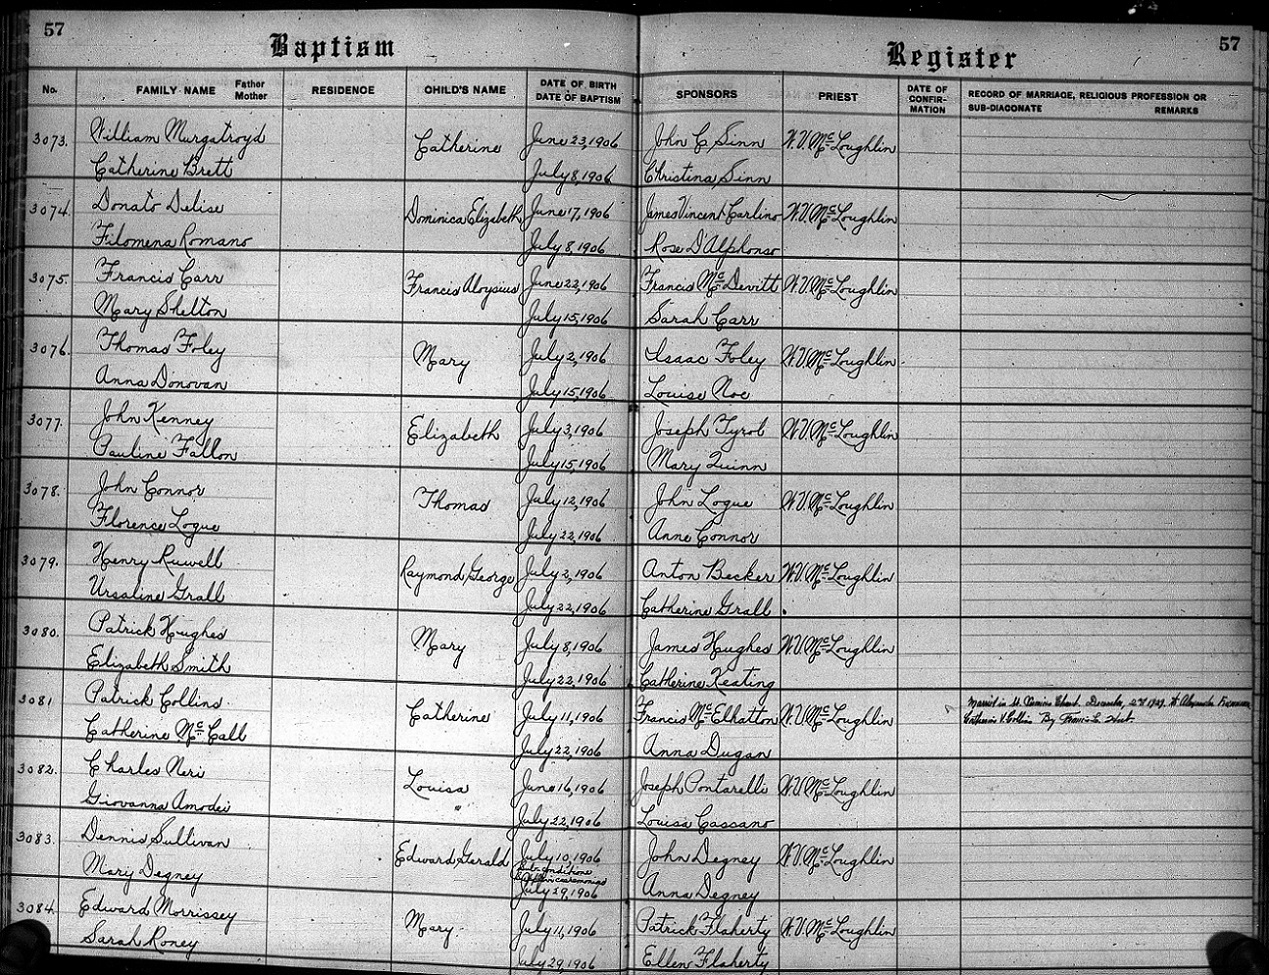 57
57
Baptism
Register
No.
FAMILY NAME
Father
Mother
RESIDENCE
CHILD'S NAME
DATE OF BIRTH
DATE OF BAPTISM
SPONSORS
PRIEST
DATE OF CONFIR-MATION
RECORD OF MARRIAGE, RELIGIOUS PROFESSION OR
SUB-DIACONATE REMARKS
3073. William Murgatroyd Catherine June 23, 1906 John C Sinn W.V. McLoughlin
Catherine Brett July 8, 1906 Christina Sinn
3074. Donato Delise Dominica Elizabeth June 17, 1906 James Vincent Carlino W.V. McLoughlin
Filomena Romano July 8, 1906 Rose D'Alphonso
3075. Francis Carr Francis Aloysius June 22, 1906 Francis McDevitt W.V. McLoughlin
Mary Shelton July 15, 1906 Sarah Carr
3076. Thomas Foley Mary July 2, 1906 Isaac Foley W.V. McLoughlin
Anna Donovan July 15, 1906 Louise Noe
3077. John Kenney Elizabeth July 3, 1906 Joseph Tyrol W.V. McLoughlin
Pauline Fallon July 15, 1906 Mary Quinn
3078. John Connor Thomas July 12, 1906 John Logue W.V. McLoughlin
Florence Logue July 22, 1906 Anne Connor
3079. Henry Ruwell Raymond George July 2, 1906 Anton Becker W.V. McLoughlin
Ursaline Grall July 22, 1906 Catherine Grall
3080. Patrick Hughes Mary July 8, 1906 James Hughes W.V. McLoughlin
Elizabeth Smith July 22, 1906 Catherine Keating
3081 Patrick Collins. Catherine July 11, 1906 Francis McElhatton W.V. McLoughlin Married in St. Church December 1929. to Alexander
Catherine McCall July 22, 1906 Anna Dugan Catherine V. Collins By Francis L.
3082. Charles Neri Louisa June 16, 1906 Joseph Pontarelli W.V. McLoughlin
Giovanna Amodei " July 22, 1906 Louisa Cassano
3083. Dennis Sullivan Edward Gerald July 10, 1906 John Degney W.V. McLoughlin
Sub conditione
Mary Degney July 29, 1906 Anna Degney
3084. Edward Morrissey Mary. July 11, 1906 Patrick Flaherty W.V. McLoughlin
Sarah Roney July 29, 1906 Ellen Flaherty